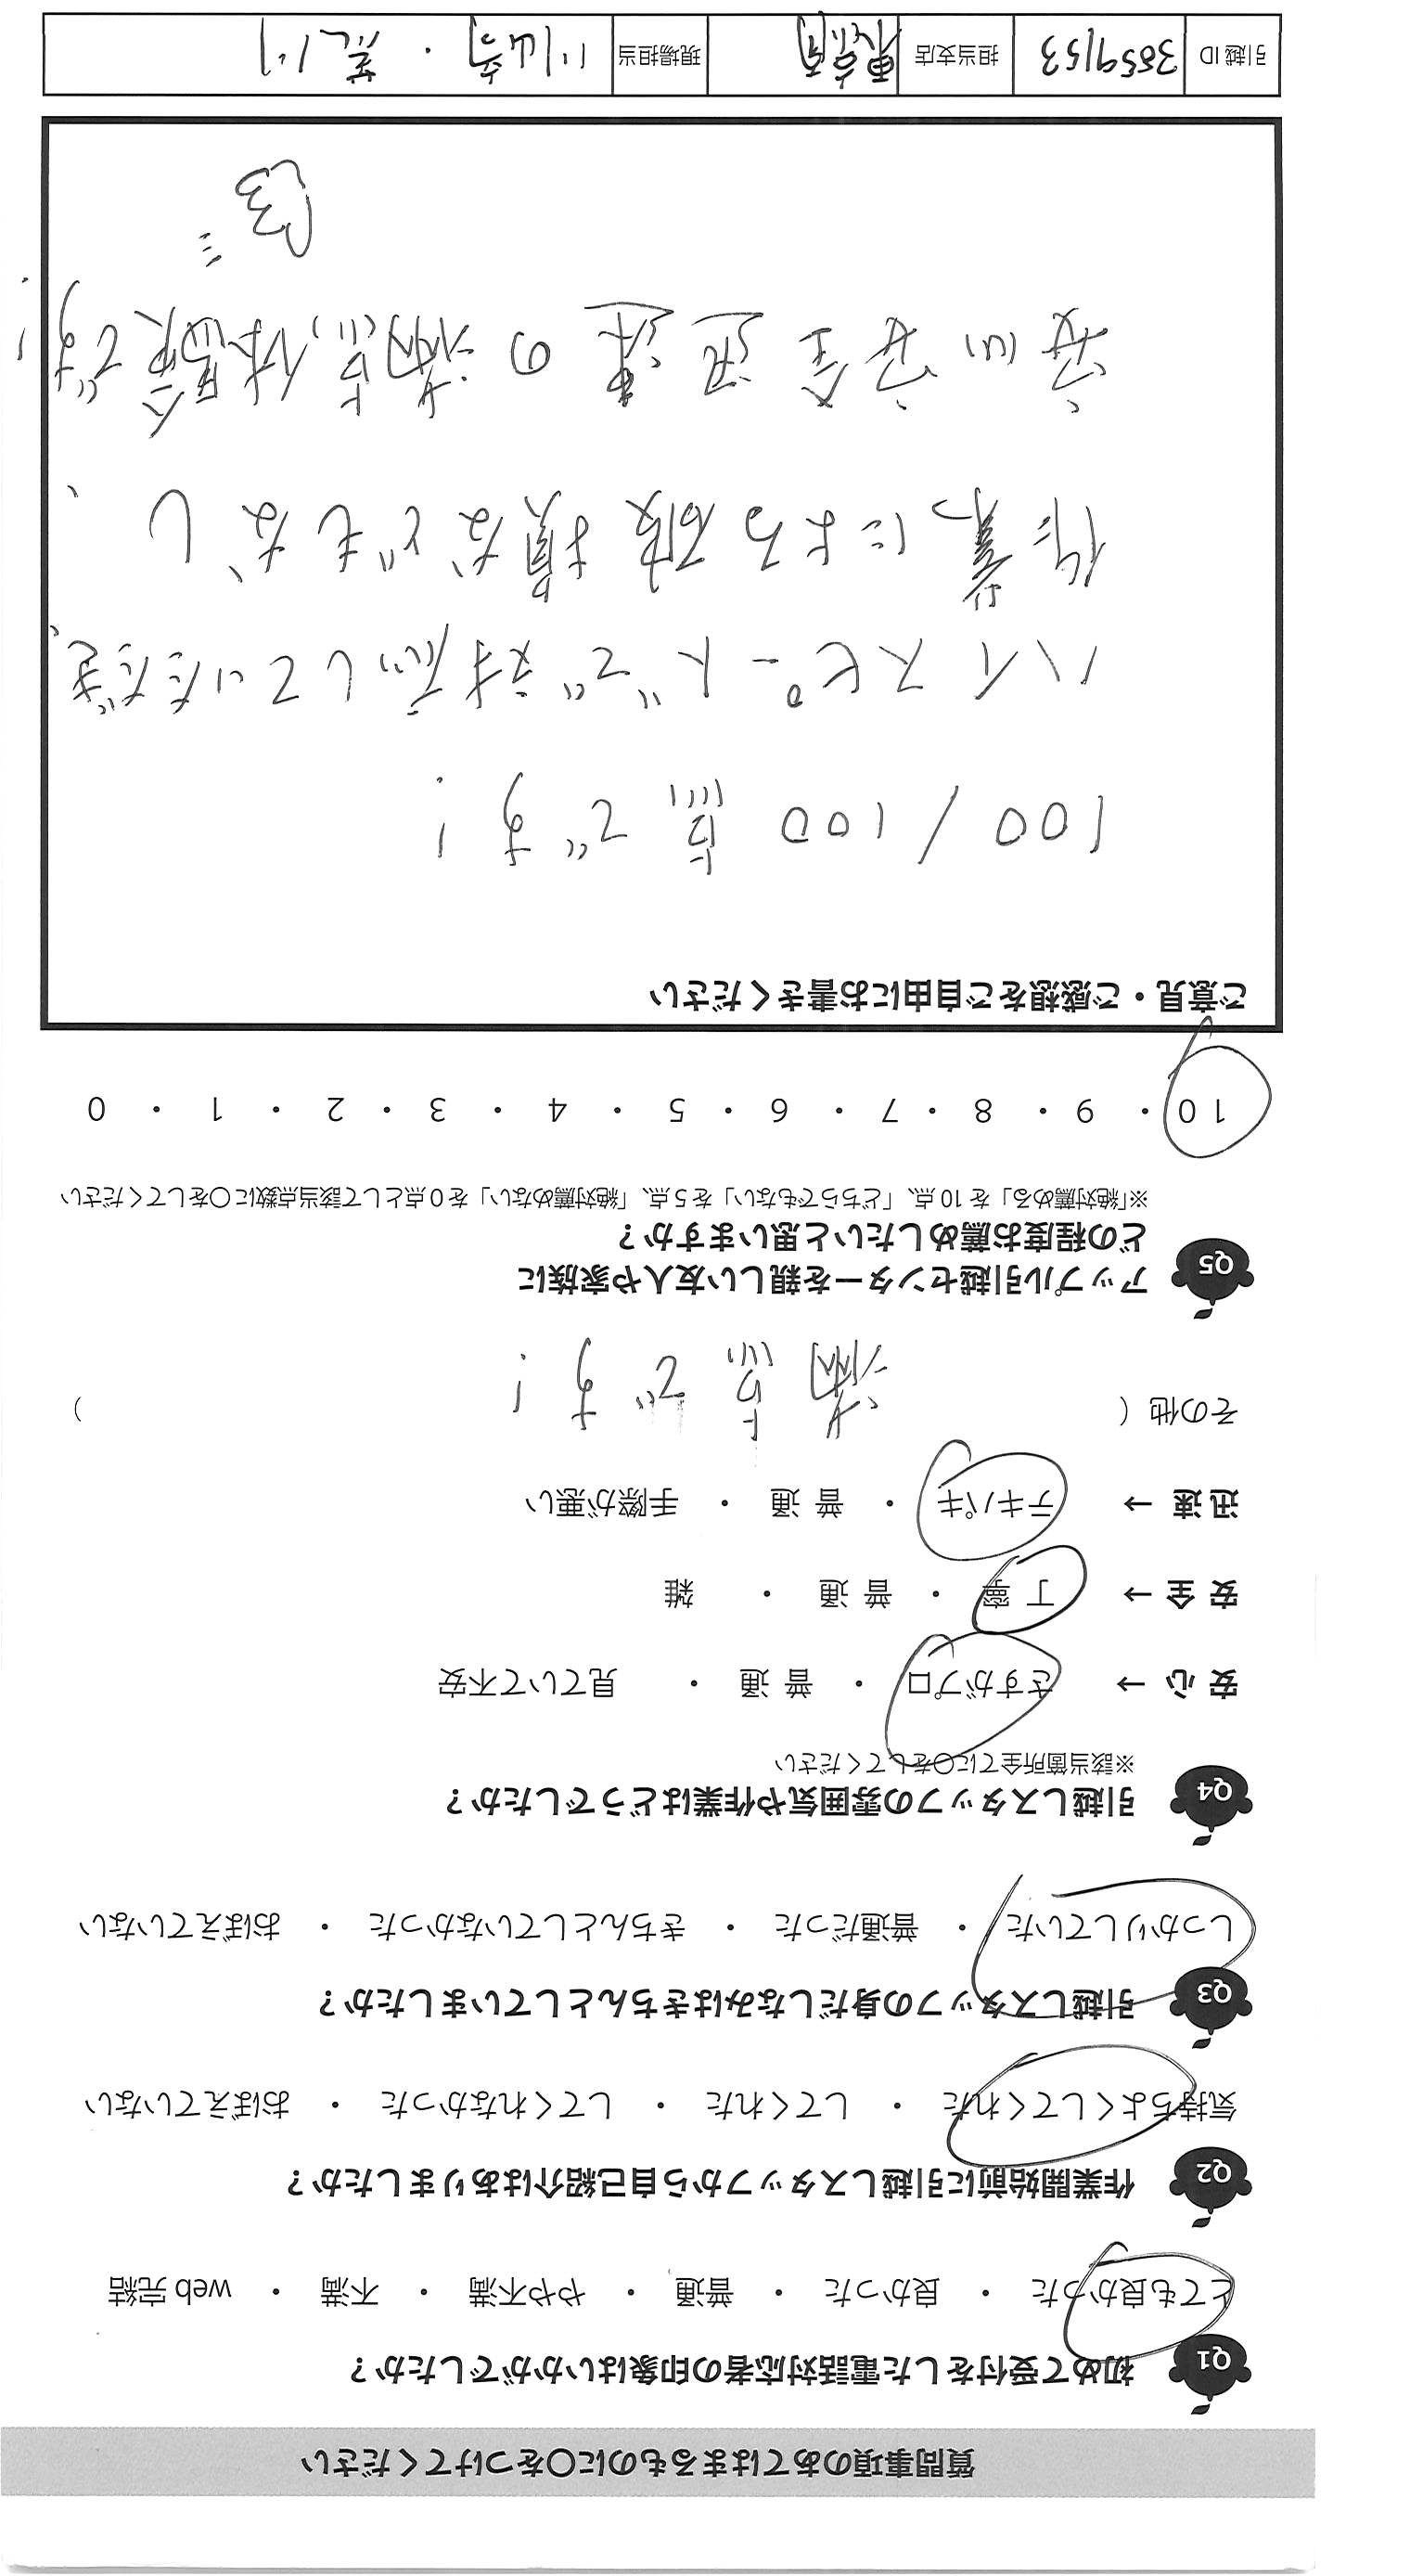 質問事項のあてはまるものに○をつけてください
Q1 初めて受付をした電話対応者の印象はいかがでしたか？
とても良かった ・ 良かった ・ 普通 ・ やや不満 ・ 不満 ・ web 完結
Q2 作業開始前に引越しスタッフから自己紹介はありましたか？
気持ちよくしてくれた ・ してくれた ・ してくれなかった ・ おぼえていない
Q3 引越しスタッフの身だしなみはきちんとしていましたか？
しっかりしていた ・ 普通だった ・ きちんとしていなかった ・ おぼえていない
Q4 引越しスタッフの雰囲気や作業はどうでしたか？
※該当箇所全てに○をしてください
安 心 → さすがプロ ・ 普 通 ・ 見ていて不安
安 全 → 丁 寧 ・ 普 通 ・ 雑
迅 速 → テキパキ ・ 普 通 ・ 手際が悪い
その他（ 満点です！ ）
Q5 アップル引越センターを親しい友人や家族に
どの程度お薦めしたいと思いますか？
※「絶対薦める」を 10 点、「どちらでもない」を 5 点、「絶対薦めない」を 0 点として該当点数に○をしてください
10 ・ 9 ・ 8 ・ 7 ・ 6 ・ 5 ・ 4 ・ 3 ・ 2 ・ 1 ・ 0
ご意見・ご感想をご自由にお書きください
100/100点です！
ハイスピードで対応していただき、
作業による破損などもなし、
安心安全迅速の満点体験です！
引越 ID 3859153 担当支店 東京南 現場担当 川崎・荒川